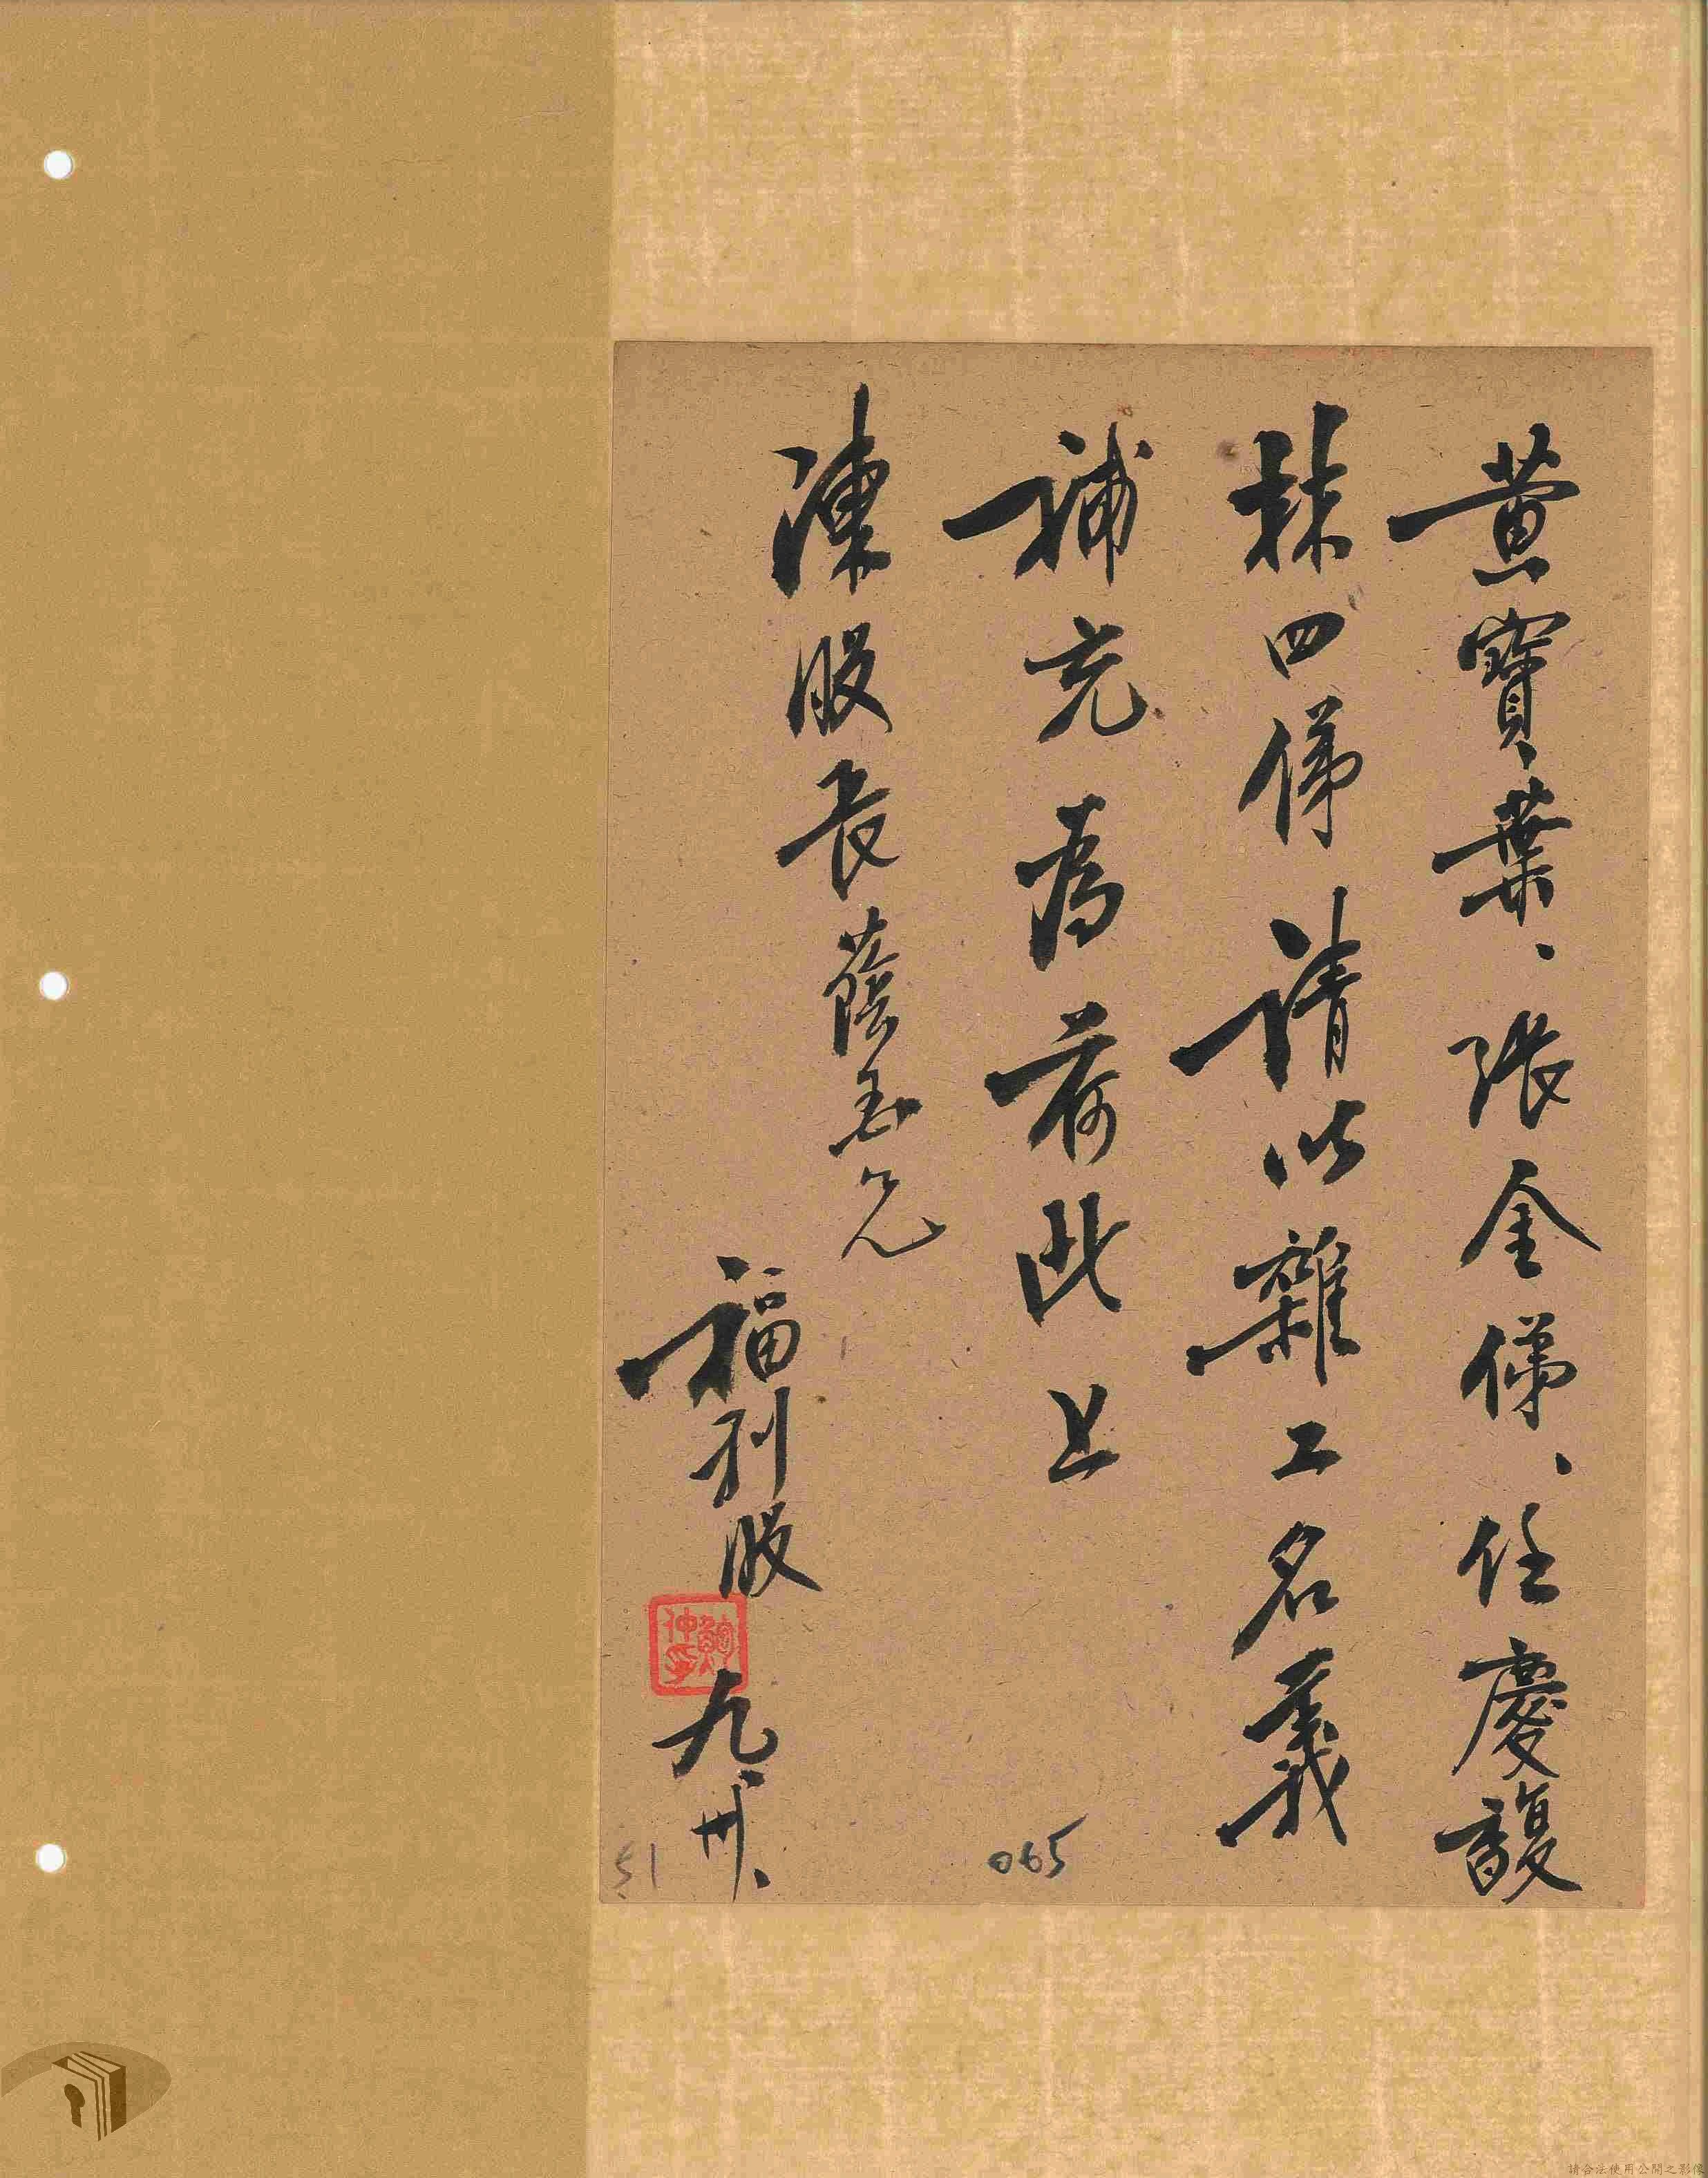 黃寶葉、張金俤、任慶馥
林四俤請以雜工名義
補充為荷此上
陳股長蔭
福利股
九卅、
065
51
請合法使用公開之影像